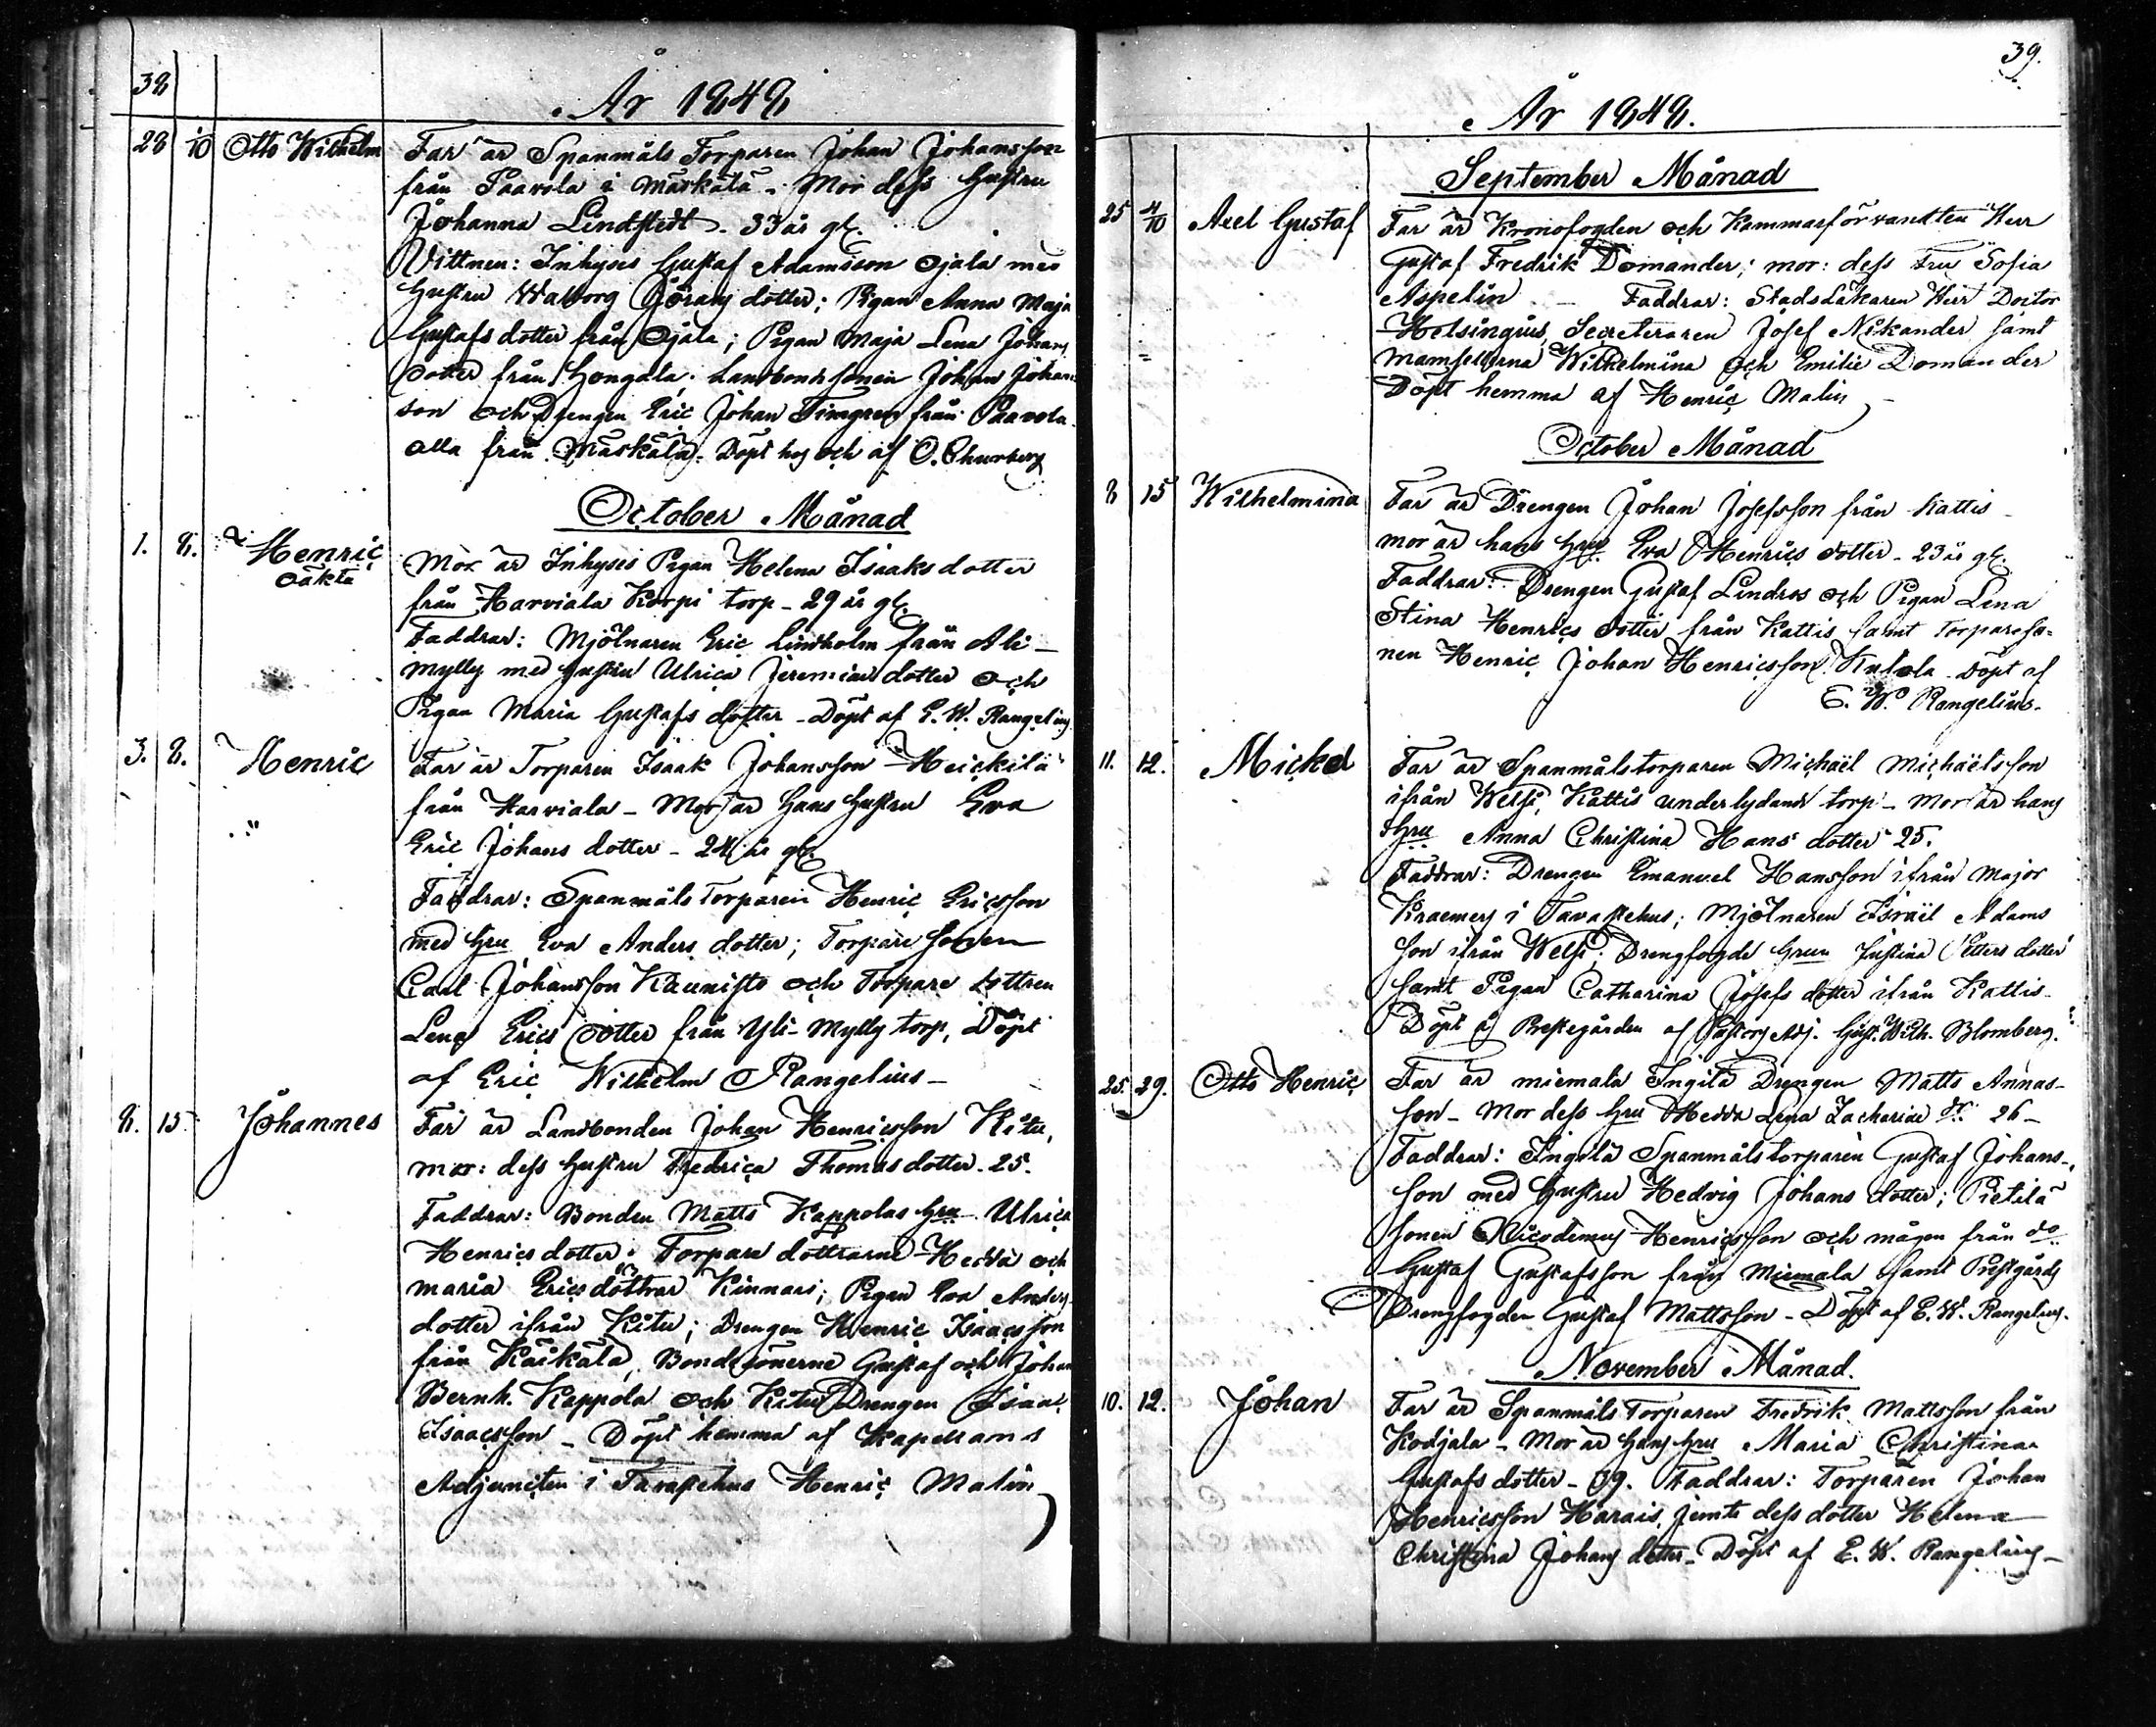 38
År 1848
28 1/10 Otto Wilhelm Far är Spanmåls Torparen Johan Johansson
från Paavola i Måskala - Mor dess hustru
Johanna Lindstedt - 33 år gl.
Vittnen: Inhyses Gustaf Adamsson Ojala med
hustru Walborg Görans dotter; Pigan Anna Maja
Gustafs dotter från Ojala; Pigan Maja Lena Johans
dotter från Hongala. Landbondesonen Johan Johans
son och Drengen Eric Johan Timgren från Paavola
alla från Måskala. Döpt hos och af O. Churberg
October Månad
1. 8. Henric Mor är Inhyses Pigan Helena Isaaks dotter
oäkta
från Harviala Korpi torp - 29 år gl.
Faddrar: Mjölnaren Eric Lindholm från Ali-
mylly med hustru Ulrica Jeremiae dotter och
Pigan Maria Gustafs dotter - Döpt af E. W. Rangelius
3. 8. Henric Far är Torparen Isaak Johansson Heickilä
från Harviala - Mor är hans hustru Eva
Eric Johans dotter - 24 år gl.
Faddrar: Spanmåls Torparen Henric Ericsson
med hru Eva Anders dotter; Torpare sonen
Carl Johansson Kaunisto och Torpare dottren
Lena Erics dotter från Yli-Mylly torp. Döpt
af Eric Wilhelm Rangelius -
8. 15 Johannes Far är Landbonden Johan Henricsson Kitu,
mor: dess hustru Fredrica Thomas dotter - 25.
Faddrar: Bonden Matts Kappolas hru Ulrica
Henrics dotter. Torpare döttrarne Hedda och
Maria Erics döttrar Kinnari; Pigan Eva Anders
dotter ifrån Kitu; Drengen Henric Isaacsson
från Käikälä, Bondesönerne Gustaf och Johan
Bernh. Kappola och Kitu Drengen Isaac
Isaacsson - Döpt hemma af Kapellans
Adjuncten i Tavastehus Henric Malin
39.
År 1848.
September Månad
25 4/10 Axel Gustaf Far är Kronofogden och Kammarförvandten Herr
Gustaf Fredrik Domander; mor: dess Fru Sofia
Aspelin - Faddrar: Stadsläkaren Herr Doctor
Helsingius, Secreteraren Josef Nikander samt
Mamsellerna Wilhelmina och Emilie Domander
Döpt hemma af Henric Malin
October Månad
8 15 Wilhelmina Far är Drengen Johan Josefsson från Kattis
mor är hans hru Eva Henrics dotter - 23 år gl.
Faddrar: Drengen Gustaf Lindros och Pigan Lena
Stina Henrics dotter från Kattis samt Torpareso-
nen Henric Johan Henricsson Kulola. Döpt af
E. W. Rangelius.
11. 12. Mickel Far är Spanmålstorparen Michaël Michaëlsson
ifrån Welsi, Kattis underlydande torp - Mor är hans
Hru Anna Christina Hans dotter 25.
Faddrar: Drengen Emanuel Hansson ifrån Major
Kraemers i Tavastehus; Mjölnaren Israël Adams
son ifrån Welsi; Drengfogde hrun Justina Petters dotter
samt Pigan Catharina Josefs dotter ifrån Kattis.
Döpt å Prestegården af Pastors Adj. Gust. Wilh. Blomberg.
25. 29. Otto Henric Far är Miemala Ingilä Drengen Matts Annas-
son - Mor dess hru Hedda Lena Zachariae dr 26 -
Faddrar: Ingelä Spanmålstorparen Gustaf Johans-
son med hustru Hedvig Johans dotter; Pietilä
sonen Nicodemus Henricsson och mågen från do
Gustaf Gustafsson från Miemala samt Prestgårds
Drengfogden Gustaf Mattsson - Döpt af E. W. Rangelius.
November Månad.
10. 12. Johan Far är Spanmåls Torparen Fredrik Mattsson från
Kodjala - Mor är hans hru Maria Christina
Gustafs dotter - 39. Faddrar: Torparen Johan
Henricsson Harais, jemte dess dotter Helena
Christina Johans dotter - Döpt af E. W. Rangelius -